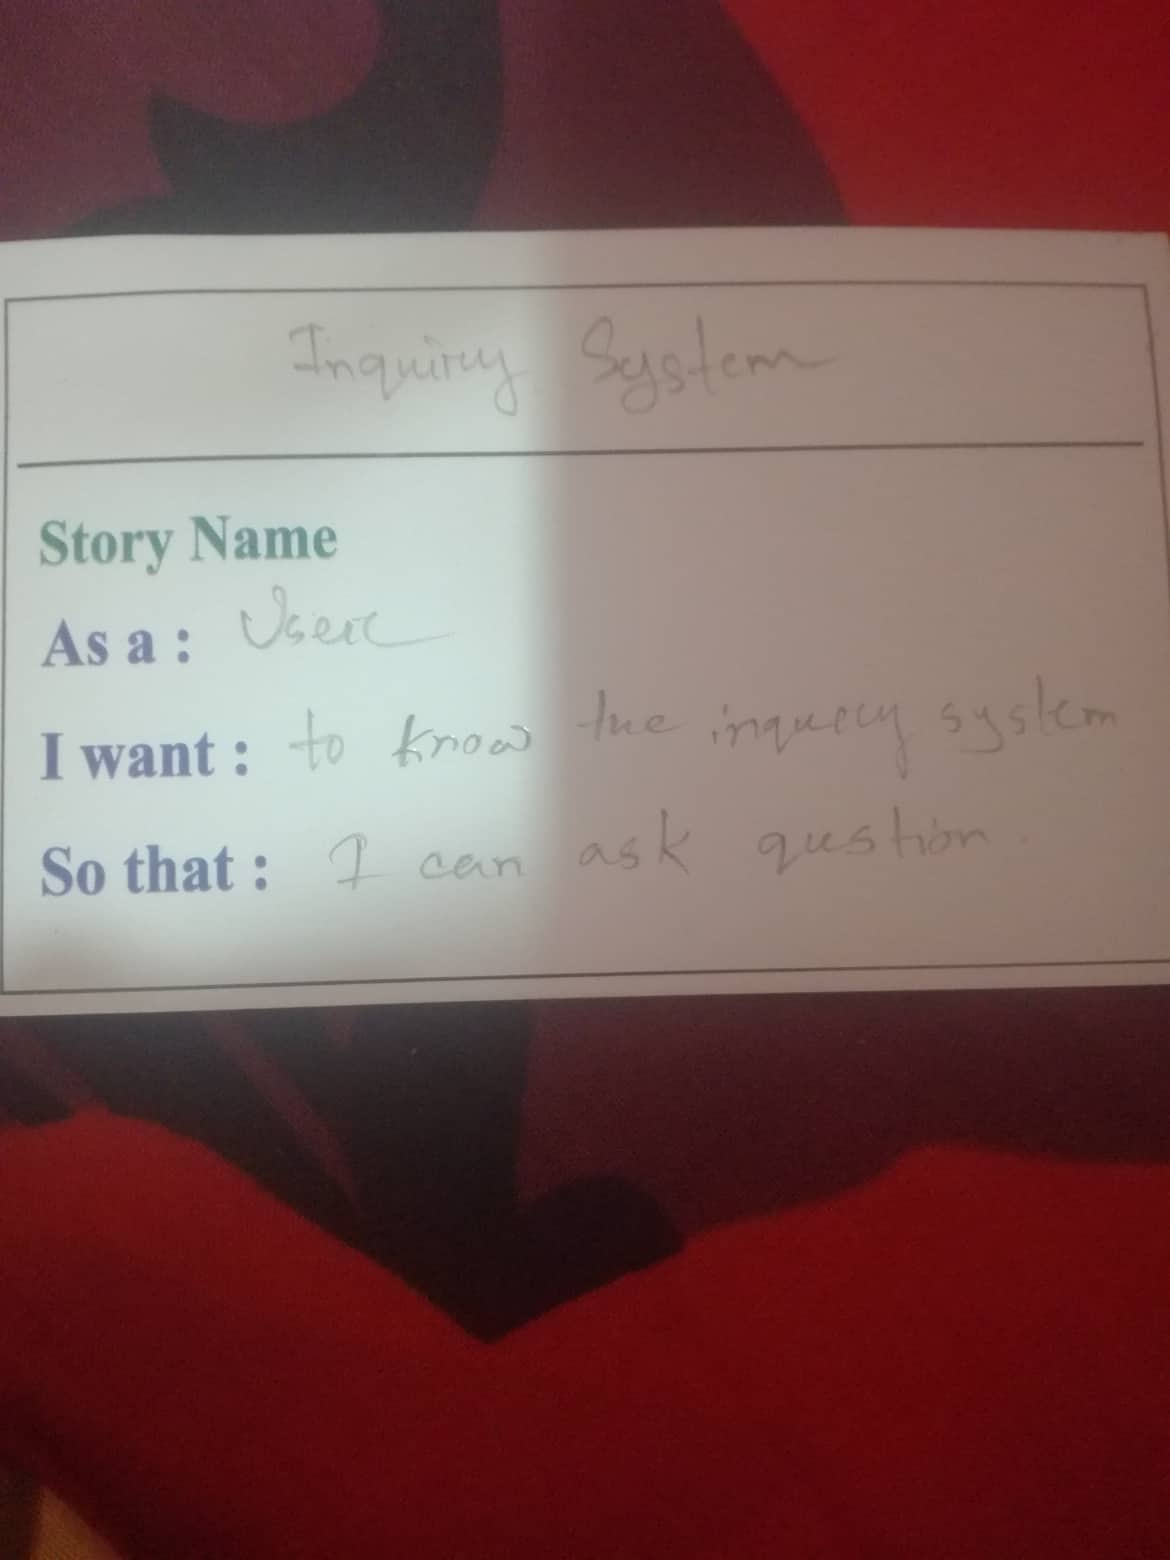 Inquiry System
Story Name
As a : User
I want : to know the inquery system
So that : I can ask qustion.